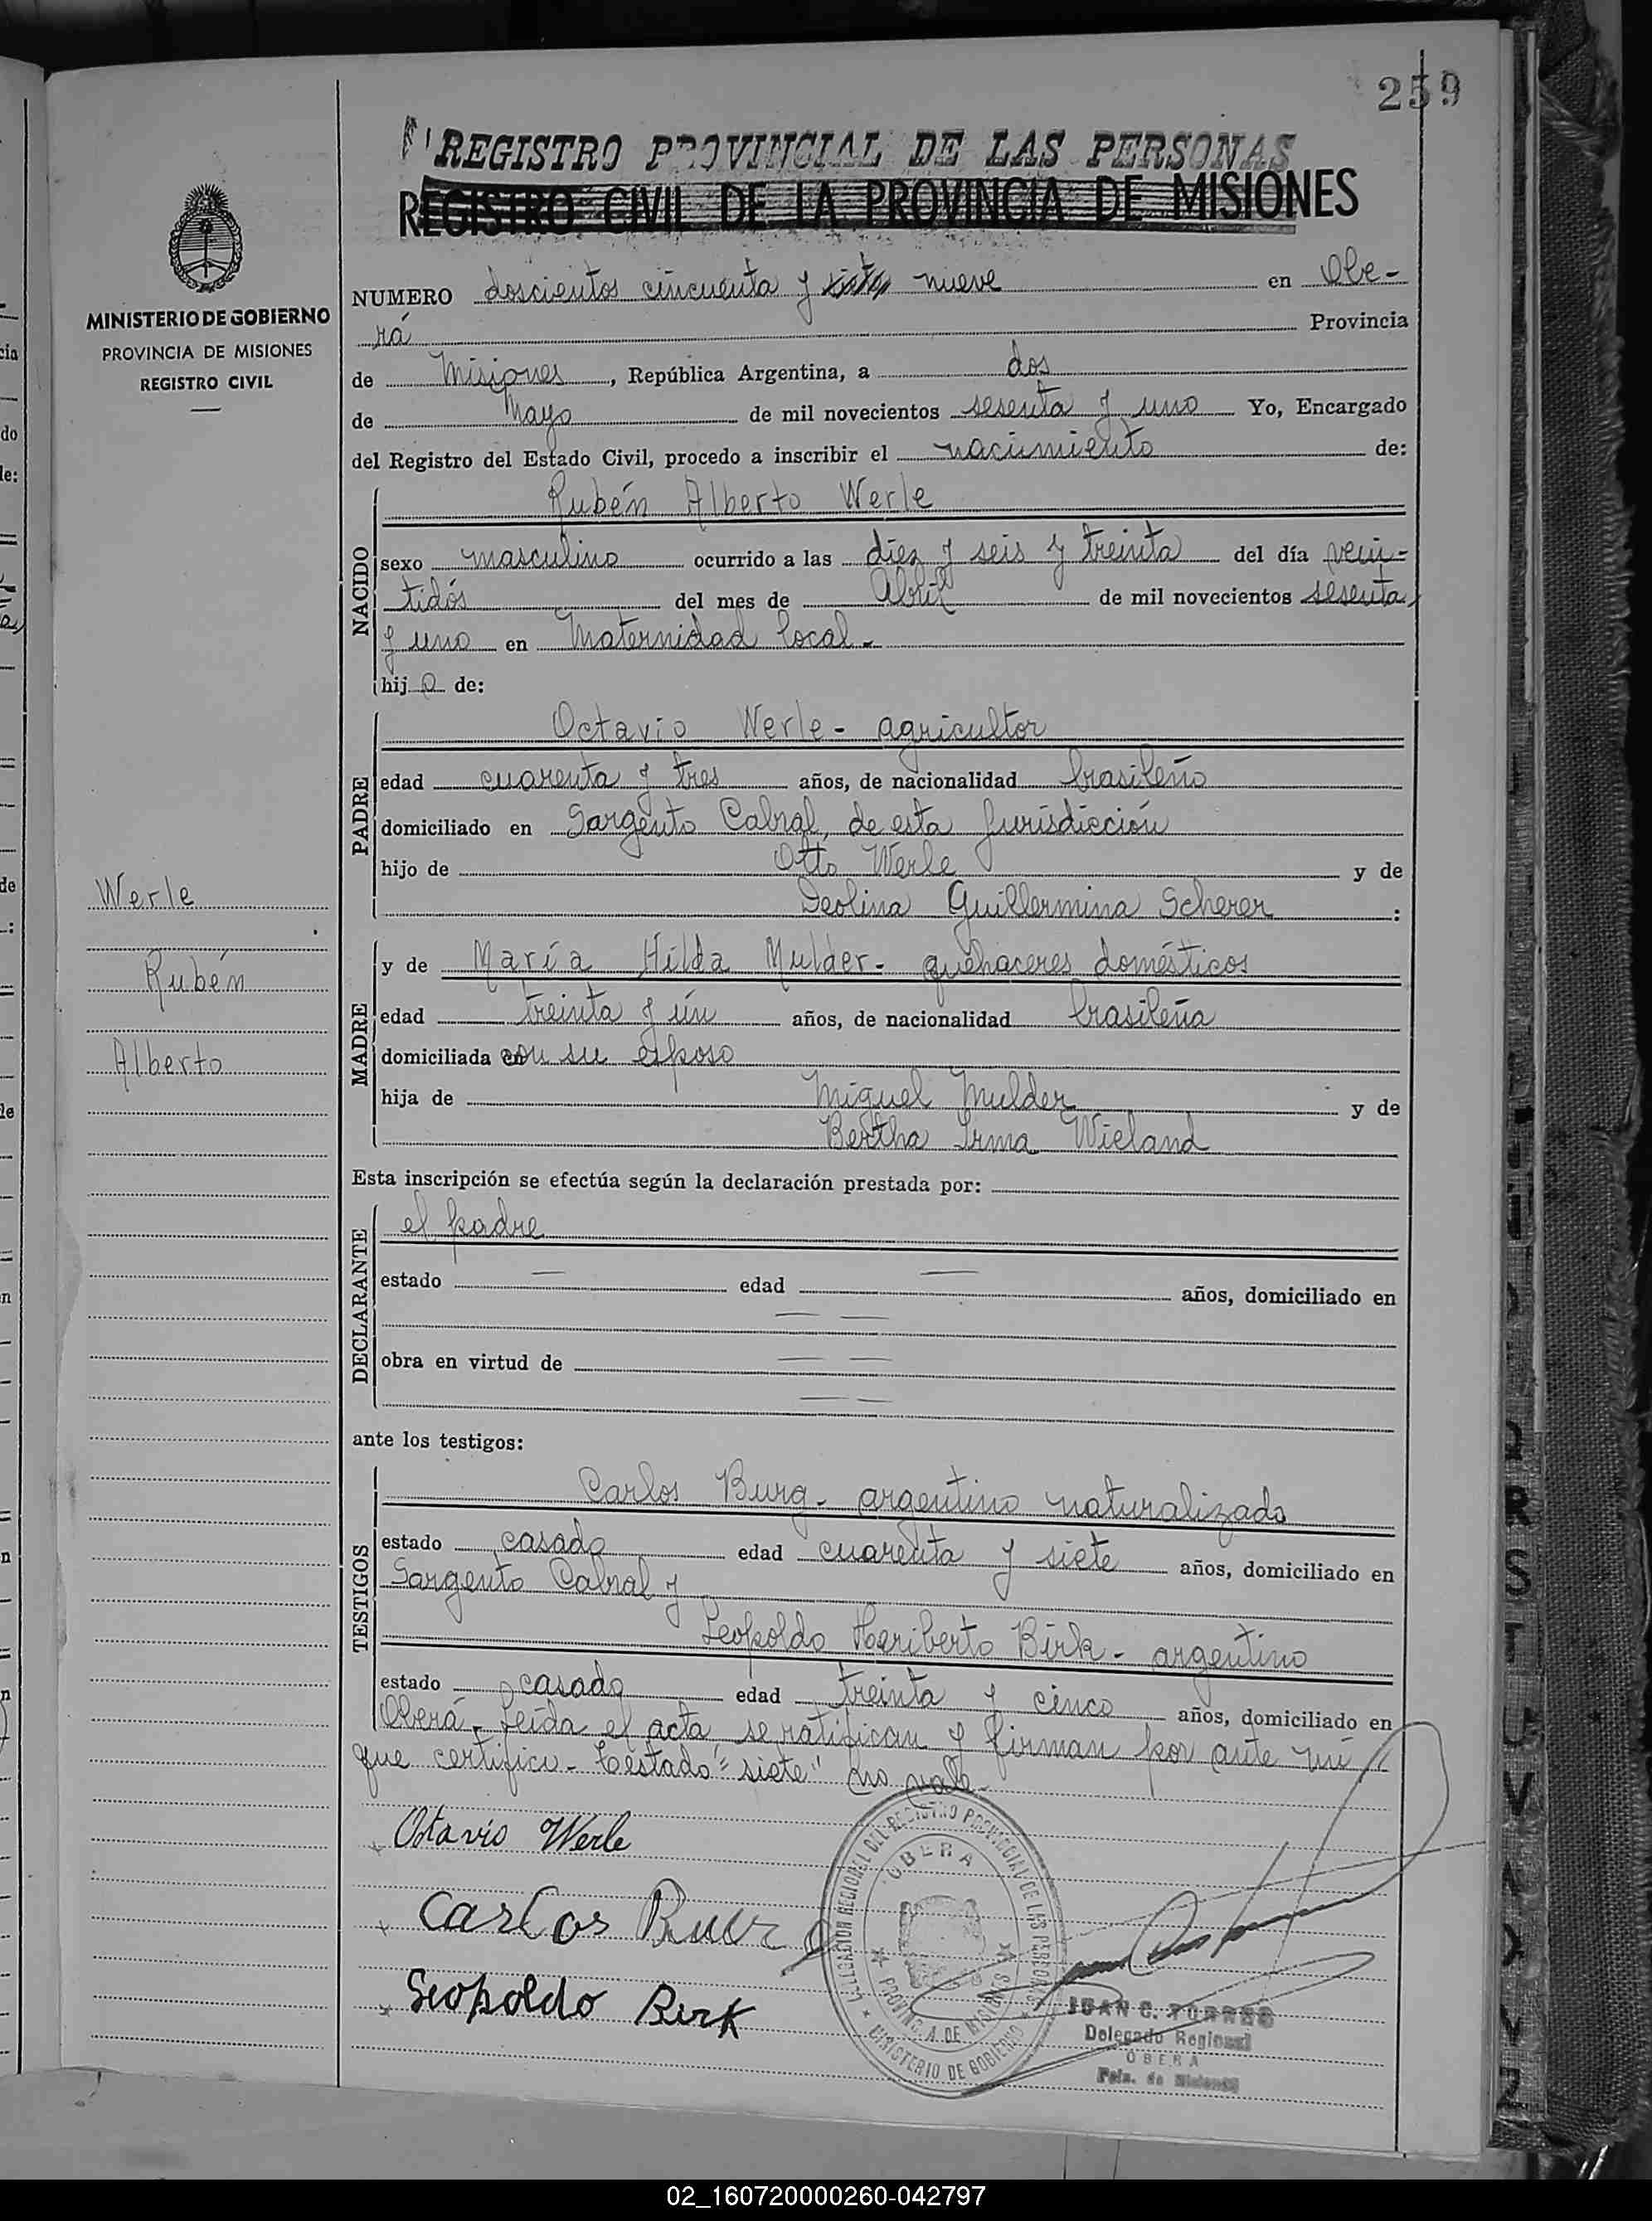 259
REGISTRO PROVINCIAL DE LAS PERSONAS
REGISTRO CIVIL DE LA PROVINCIA DE MISIONES
MINISTERIO DE GOBIERNO
PROVINCIA DE MISIONES
REGISTRO CIVIL
NUMERO doscientos cincuenta y siete nueve en Obe-
rá Provincia
de Misiones, República Argentina, a dos
de Mayo de mil novecientos sesenta y uno Yo, Encargado
del Registro del Estado Civil, procedo a inscribir el nacimiento de:
NACIDO
Rubén Alberto Werle
sexo masculino ocurrido a las diez y seis y treinta del día vein-
tidós del mes de Abril de mil novecientos sesenta
y uno en Maternidad local.-
hijo de:
PADRE
Octavio Werle - agricultor
edad cuarenta y tres años, de nacionalidad brasileño
domiciliado en Sargento Cabral, de esta Jurisdicción
hijo de Otto Werle y de
Guillermina Scherer:
Werle
Rubén
Alberto
MADRE
y de María Hilda Mulder - quehaceres domésticos
edad treinta y ún años, de nacionalidad brasileña
domiciliada con su esposo
hija de Miguel Mulder y de
Bertha Irma Wieland
Esta inscripción se efectúa según la declaración prestada por:
DECLARANTE
el padre
estado — edad — años, domiciliado en
— —
obra en virtud de — —
— —
ante los testigos:
TESTIGOS
Carlos Burg - argentino naturalizado
estado casado edad cuarenta y siete años, domiciliado en
Sargento Cabral y
Leopoldo Heriberto Birk - argentino
estado casado edad treinta y cinco años, domiciliado en
Oberá. Leída el acta, se ratifican y firman por ante mí
que certifico - Testado: "siete" no vale.-
Octavio Werle
Carlos Burg
Leopoldo Birk
DELEGACION REGIONAL DEL REGISTRO PROVINCIAL DE LAS PERSONAS
OBERA
PROVINCIA DE MISIONES
MINISTERIO DE GOBIERNO
JUAN C. TORRES
Delegado Regional
OBERA
Pcia. de Misiones
02_160720000260-042797